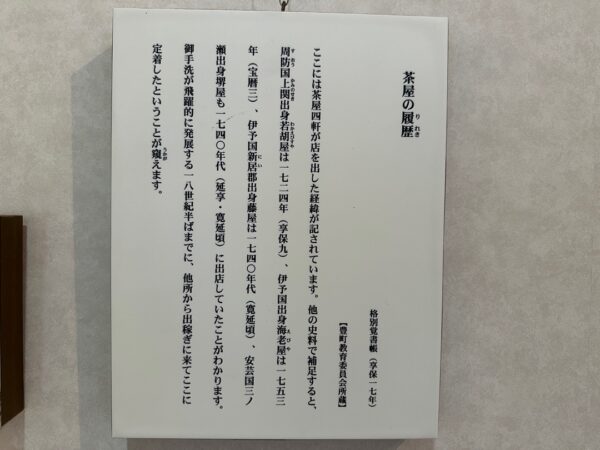 茶屋の履歴
格別覚書帳(享保一七年)
【豊町教育委員会所蔵】
ここには茶屋四軒が店を出した経緯が記されています。他の史料で補足すると、
周防国上関出身若胡屋は一七二四年(享保九)、伊予国出身海老屋は一七五三
年(宝暦三)、伊予国新居郡出身藤屋は一七四〇年代(寛延頃)、安芸国三ノ
瀬出身堺屋も一七四〇年代(延享・寛延頃)に出店していたことがわかります。
御手洗が飛躍的に発展する一八世紀半ばまでに、他所から出稼ぎに来てここに
定着したということが窺えます。